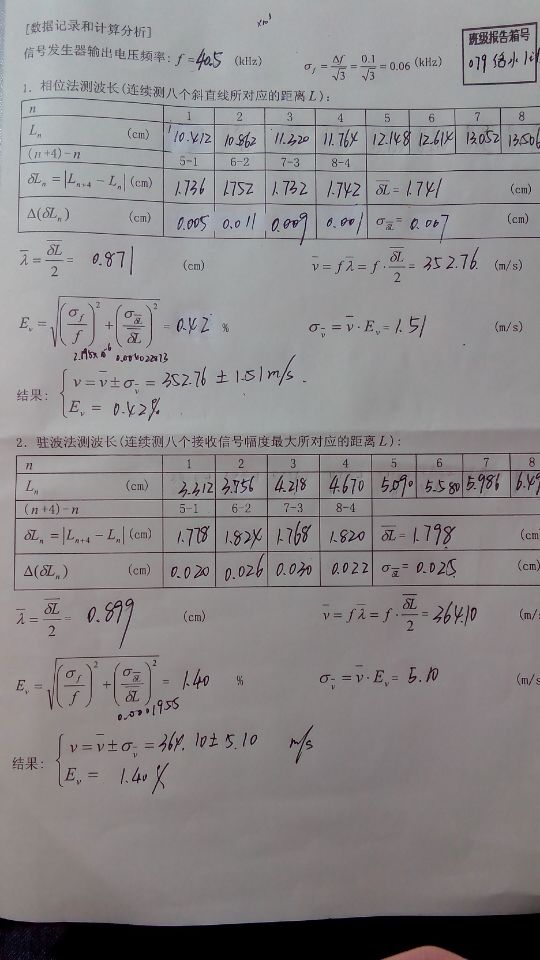 ×10³
[数据记录和计算分析]
班级报告箱号
信号发生器输出电压频率: f = 40.5 (kHz) σ_f = Δf/√3 = 0.1/√3 = 0.06 (kHz)
079
1. 相位法测波长(连续测八个斜直线所对应的距离L):
n 1 2 3 4 5 6 7 8
L_n (cm) 10.412 10.862 11.320 11.764 12.148 12.614 13.052 13.506
(n+4)-n 5-1 6-2 7-3 8-4
δL_n = |L_{n+4} - L_n| (cm) 1.736 1.752 1.732 1.742 δL̄ = 1.741 (cm)
Δ(δL_n) (cm) 0.005 0.011 0.009 0.001 σ_δL̄ = 0.007 (cm)
λ̄ = δL̄/2 = 0.871 (cm) v̄ = fλ̄ = f·δL̄/2 = 352.76 (m/s)
E_v = √((σ_f/f)² + (σ_δL̄/δL̄)²) = 0.42 % σ_v̄ = v̄·E_v = 1.51 (m/s)
结果: { v = v̄ ± σ_v̄ = 352.76 ± 1.51 m/s.
E_v = 0.42%
2. 驻波法测波长(连续测八个接收信号幅度最大所对应的距离L):
n 1 2 3 4 5 6 7 8
L_n (cm) 3.312 3.756 4.218 4.670 5.090 5.580 5.986 6.49
(n+4)-n 5-1 6-2 7-3 8-4
δL_n = |L_{n+4} - L_n| (cm) 1.778 1.824 1.768 1.820 δL̄ = 1.798 (cm
Δ(δL_n) (cm) 0.020 0.026 0.030 0.022 σ_δL̄ = 0.025 (cm
λ̄ = δL̄/2 = 0.899 (cm) v̄ = fλ̄ = f·δL̄/2 = 364.10 (m/
E_v = √((σ_f/f)² + (σ_δL̄/δL̄)²) = 1.40 % σ_v̄ = v̄·E_v = 5.10 (m/s
0.0001955
结果: { v = v̄ ± σ_v̄ = 364.10 ± 5.10 m/s
E_v = 1.40%